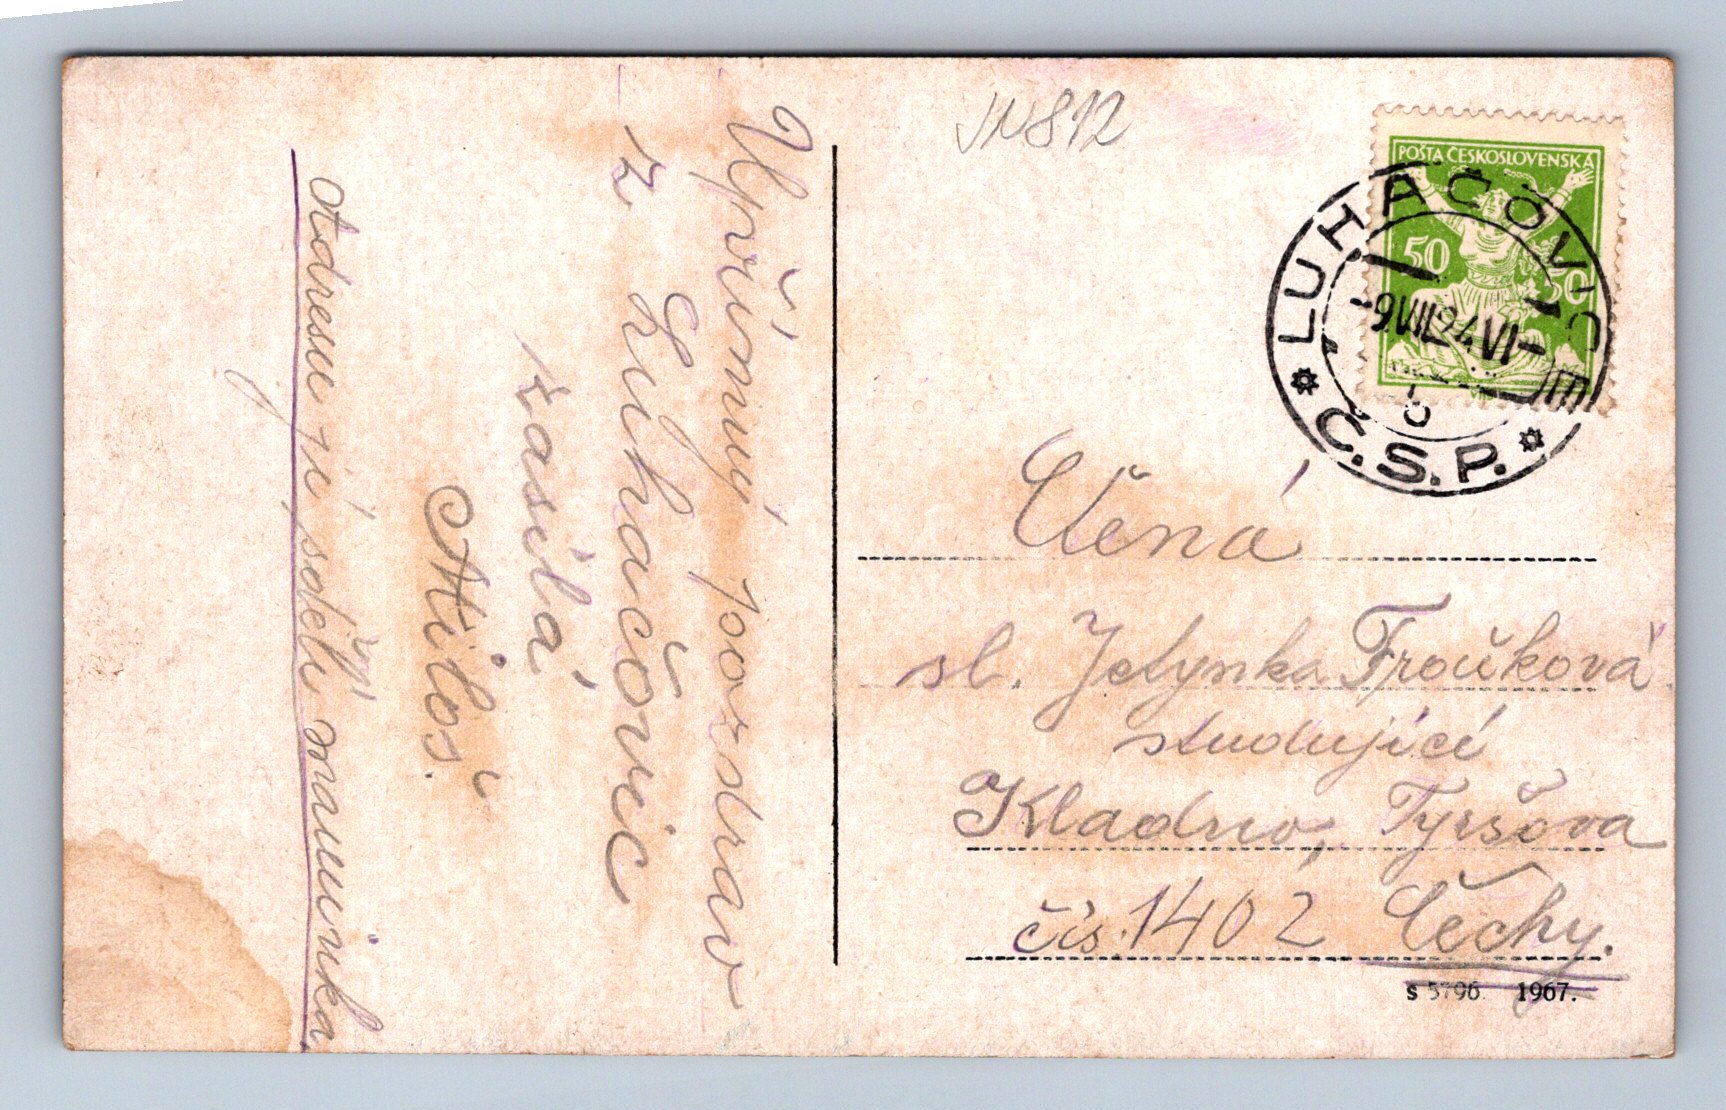 Upřímný pozdrav
z Luhačovic
zasílá
Miloš.
Adresu jí sdělí maminka
812
POŠTA ČESKOSLOVENSKÁ
50
LUHAČOVICE
-9.VIII.24.VI-
Č.S.P.
Ctěná
sl. Jetynka Froňková
studující
Kladno, Tyršova
čís. 1402 Čechy.
s 5796. 1967.